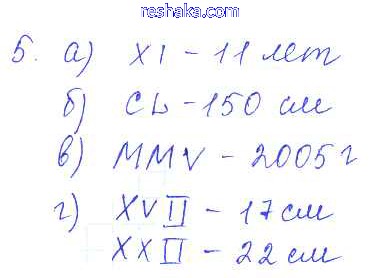 reshaka.com
5. а) XI - 11 лет
б) CL - 150 см
в) MMV - 2005 г
г) XVII - 17 см
XXII - 22 см